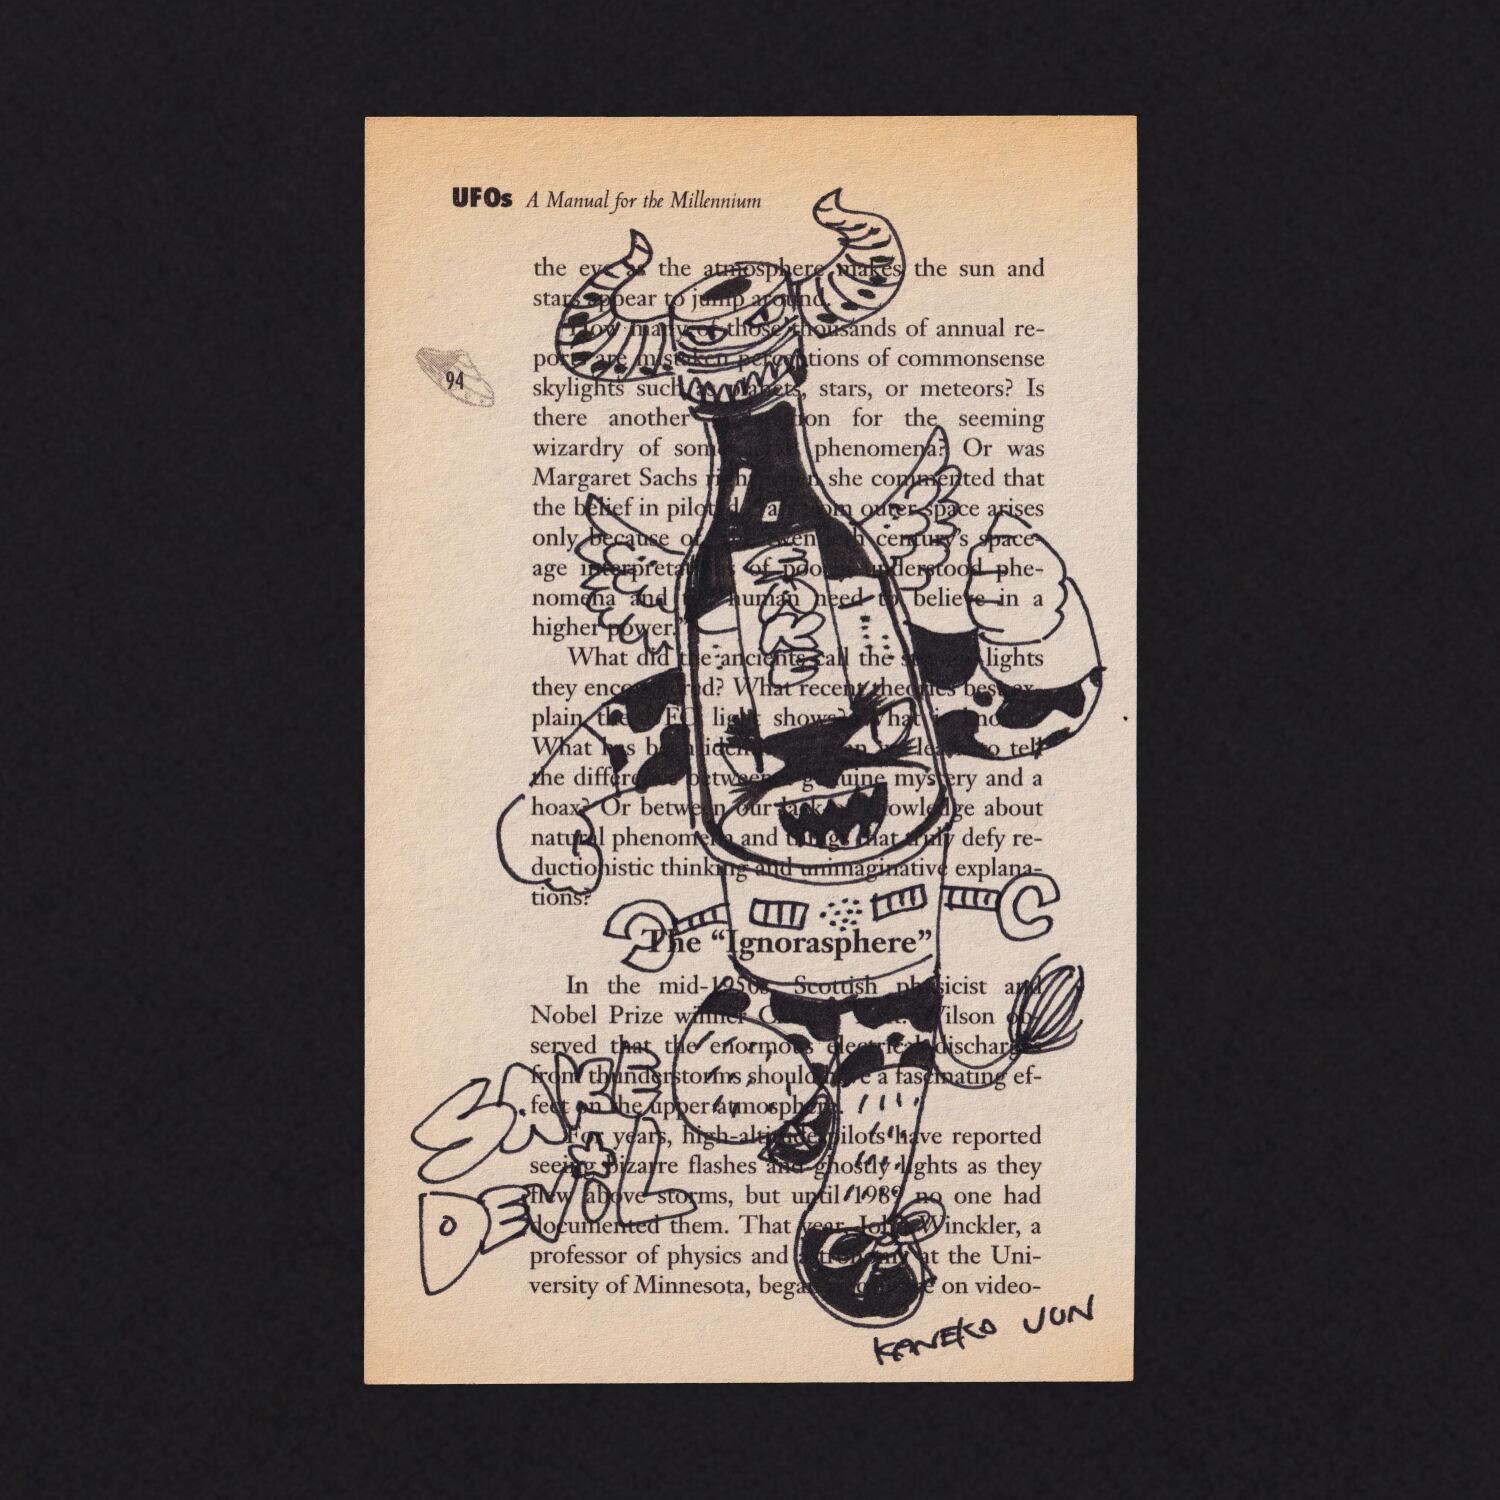 UFOs A Manual for the Millennium
the eye as the atmosphere makes the sun and
stars appear to jump around.
How many of those thousands of annual re-
ports are mistaken perceptions of commonsense
94
skylights such as planets, stars, or meteors? Is
there another for the seeming
wizardry of some phenomena? Or was
Margaret Sachs right when she commented that
the belief in piloted from outer space arises
only because of century's space-
age interpretations of poorly understood phe-
nomena and human need to believe in a
higher power."
What did the ancients call the lights
they encountered? What recent theories best ex-
plain the UFO light shows? What
What has been to tell
the difference between genuine mystery and a
hoax? Or between our lack of knowledge about
natural phenomena and things that truly defy re-
ductionistic thinking and unimaginative explana-
tions?
The "Ignorasphere"
In the mid-1950s, Scottish physicist and
Nobel Prize winner Wilson ob-
served that the enormous electrical discharges
from thunderstorms should have a fascinating ef-
fect on the upper atmosphere.
For years, high-altitude pilots have reported
seeing bizarre flashes and ghostly lights as they
flew above storms, but until 1989 no one had
documented them. That year, John Winckler, a
professor of physics and astronomy at the Uni-
versity of Minnesota, began on video-
SAKE
SAKE
DEVIL
KANEKO JUN